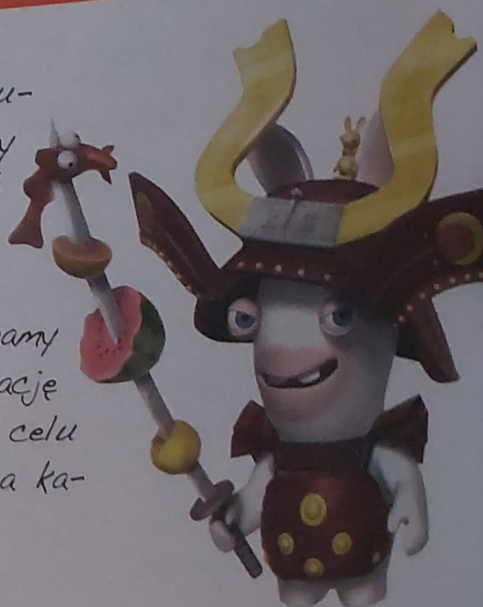 u-
y
amy
ację
celu
a ka-